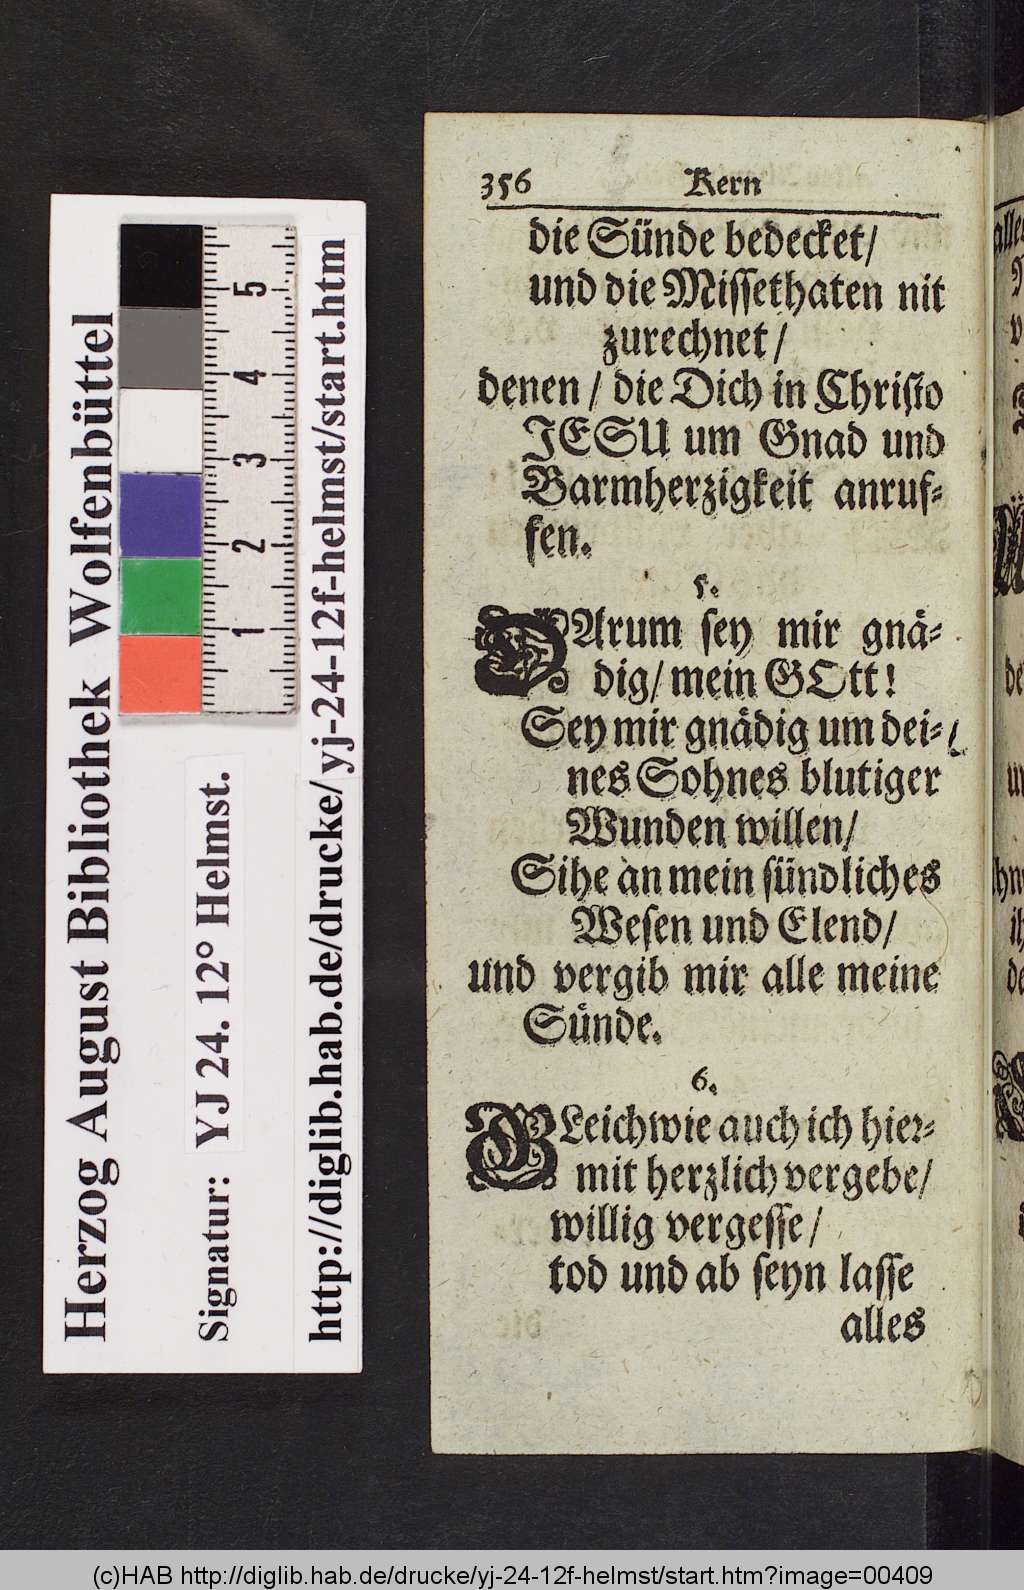 Herzog August Bibliothek Wolfenbüttel
Signatur: YJ 24. 12° Helmst.
http://diglib.hab.de/drucke/yj-24-12f-helmst/start.htm
1 2 3 4 5
356 Kern
die Sünde bedecket/
und die Missethaten nit
zurechnet /
denen / die Dich in Christo
JESU um Gnad und
Barmherzigkeit anruf-
fen.
5.
DArum sey mir gnä-
dig/ mein GOtt!
Sey mir gnädig um dei-
nes Sohnes blutiger
Wunden willen/
Sihe an mein sündliches
Wesen und Elend/
und vergib mir alle meine
Sünde.
6.
GLeichwie auch ich hier-
mit herzlich vergebe/
willig vergesse /
tod und ab seyn lasse
alles
(c)HAB http://diglib.hab.de/drucke/yj-24-12f-helmst/start.htm?image=00409